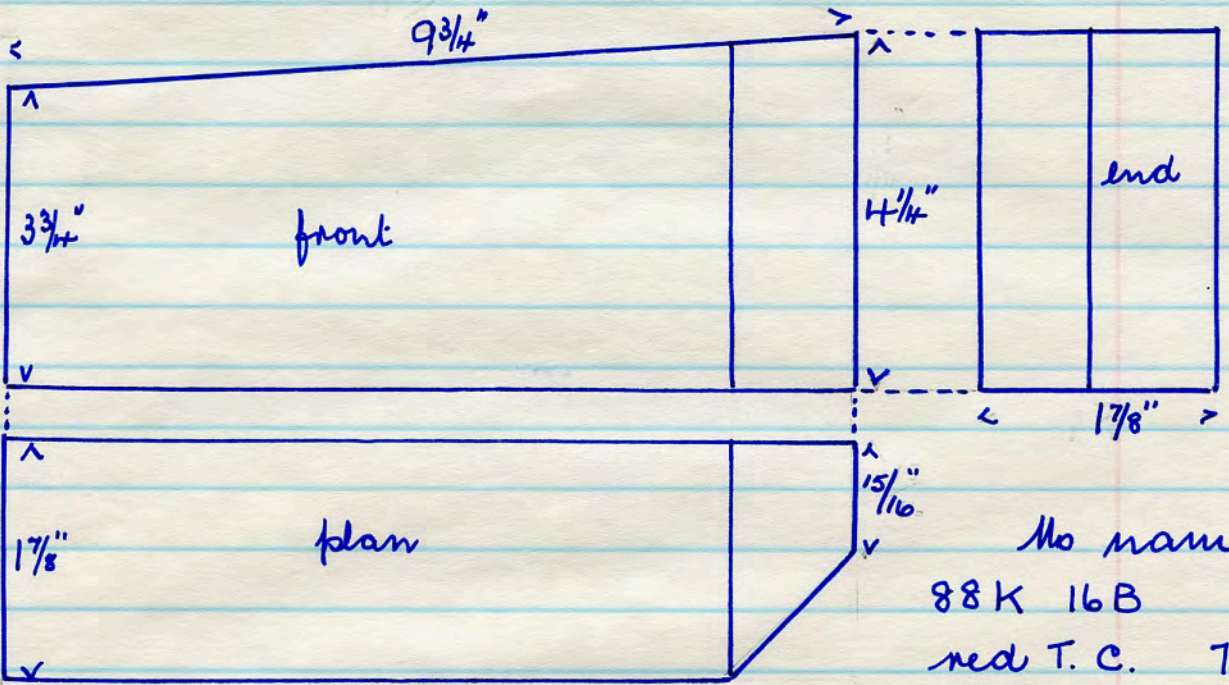 9 3/4"
3 3/4"
front
4 1/4"
end
1 7/8"
1 7/8"
plan
15/16"
No nam
88K 16B
red T. C. 7